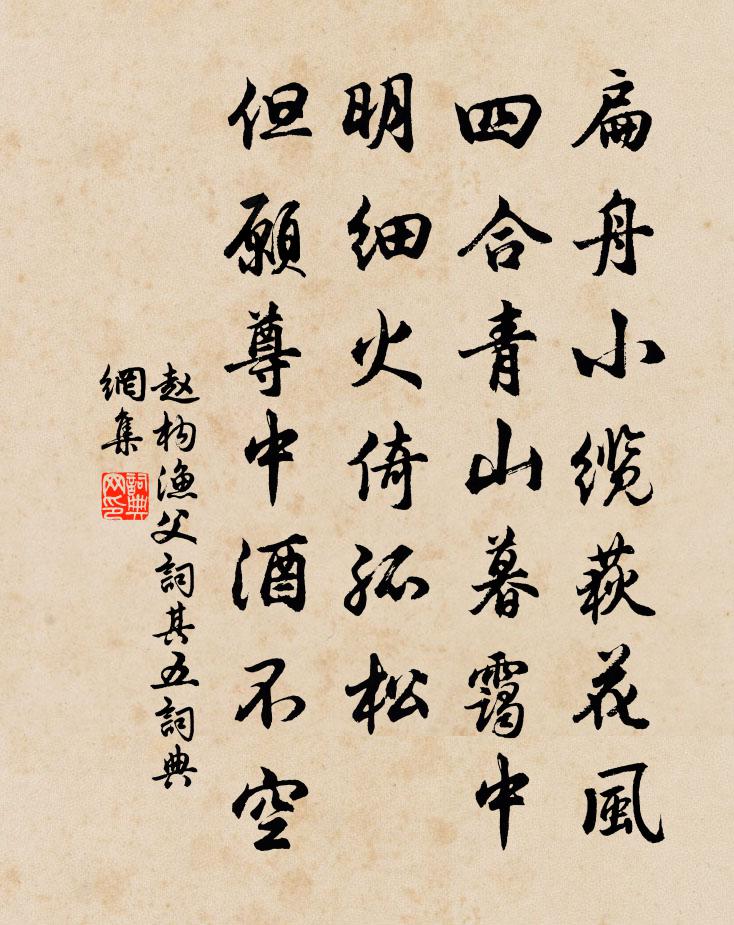 扁舟小缆荻花風
四合青山暮靄中
明細火倚孤松
但願尊中酒不空
赵构渔父詞其五詞典
網集
詞典
网印